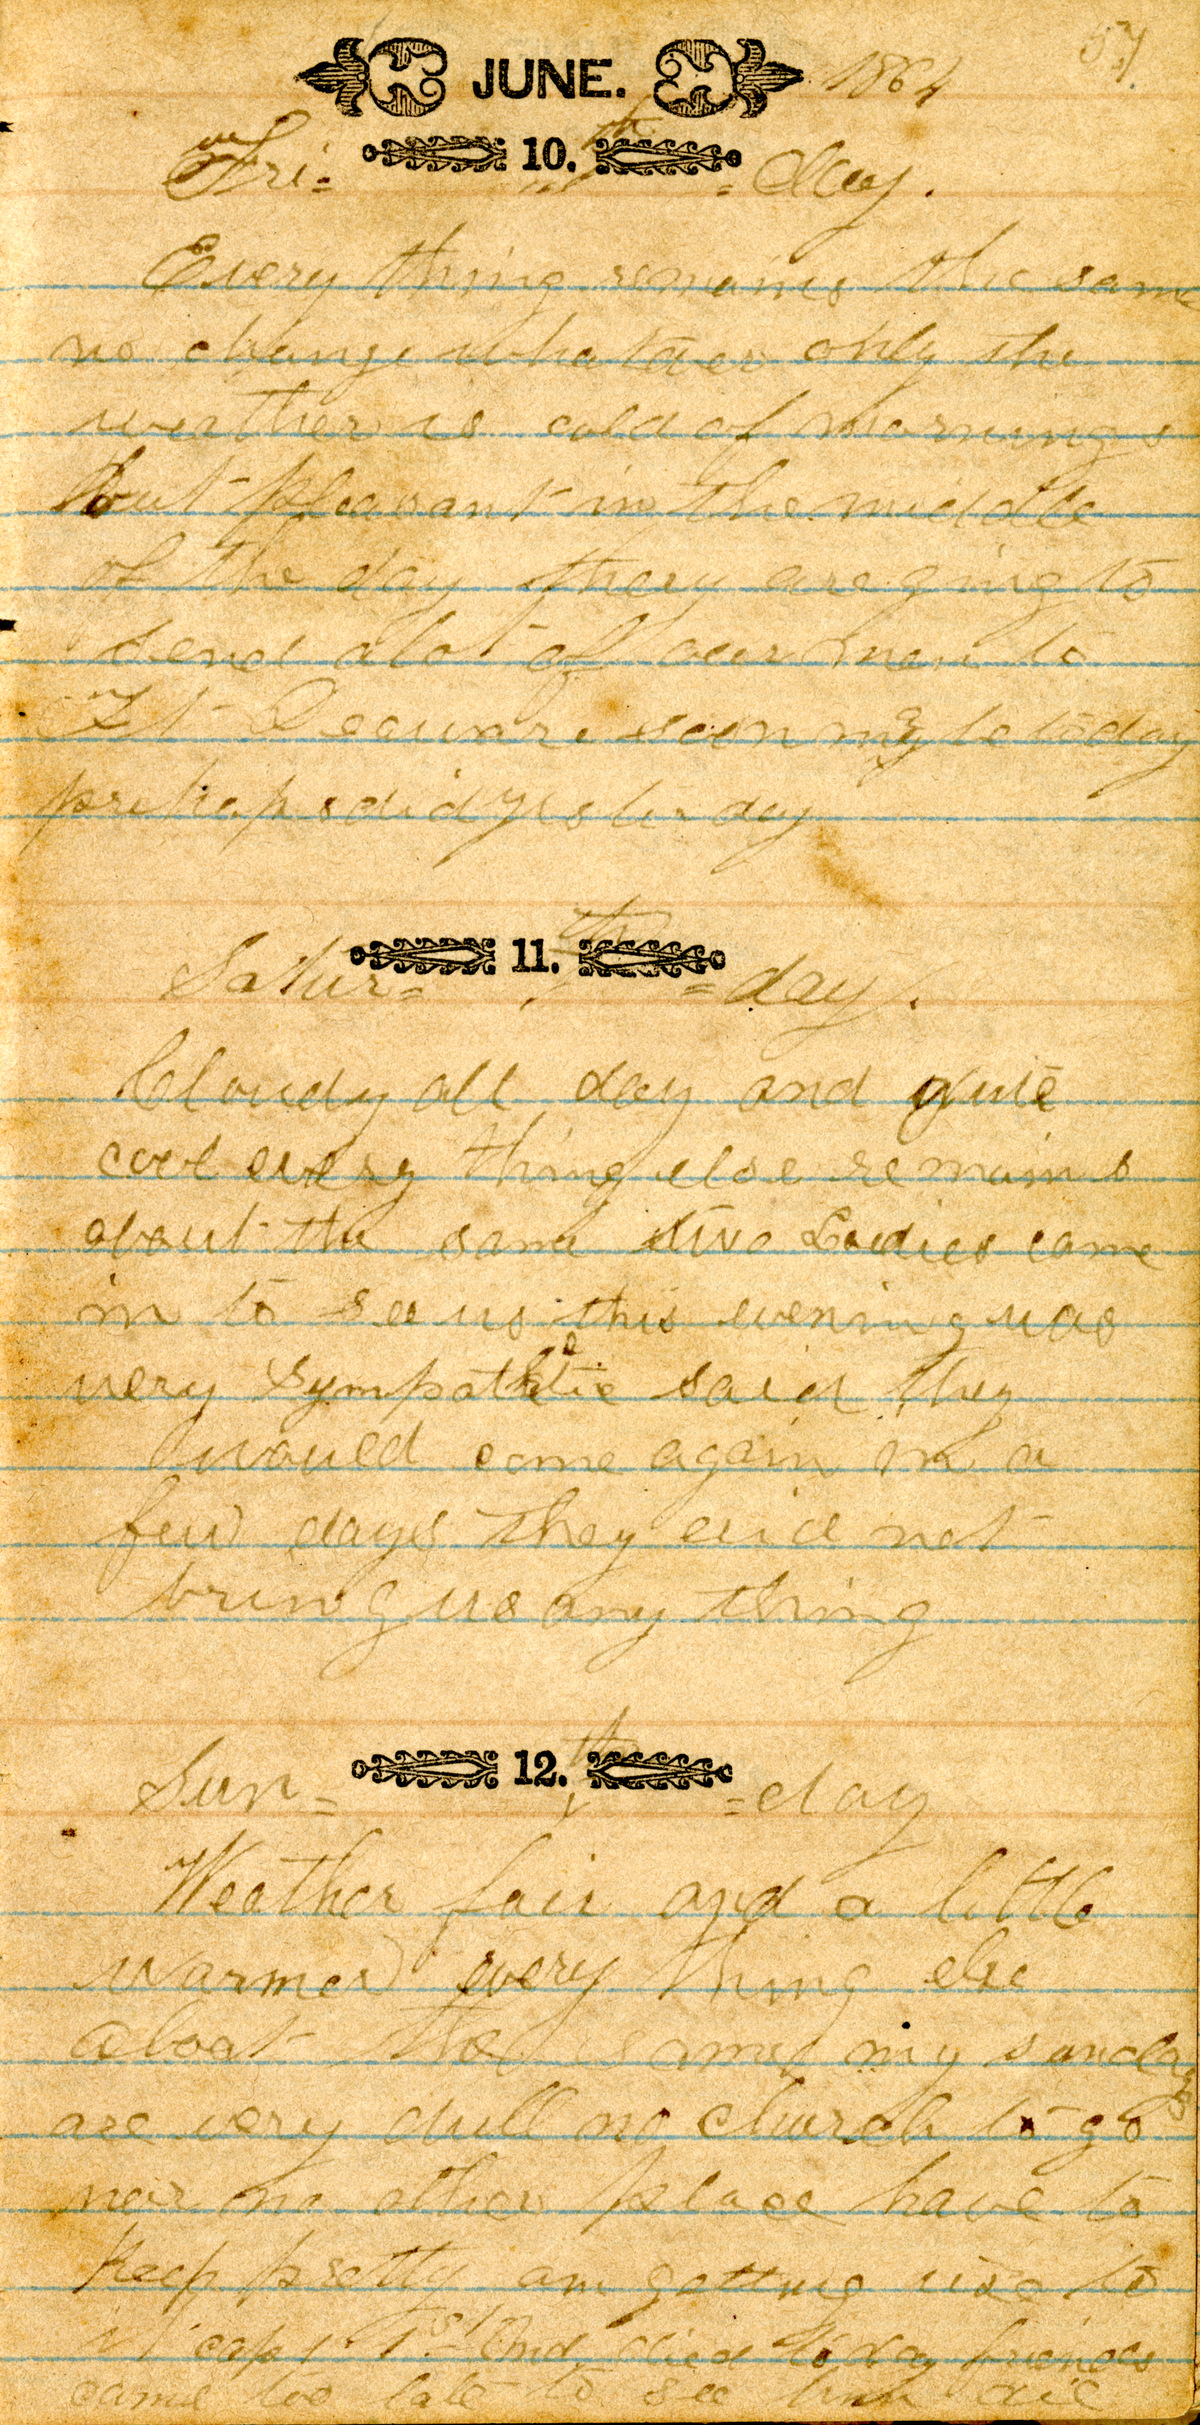 57
JUNE. 1864
Fri= 10.th =day.
Every thing remains the same
no change whatever only the
weather is cold of mornings
but pleasant in the middle
of the day they are ging to
send a lot of our men to
Ft Deleware soon may be today
prehaps did yesterday
Satur= 11.th =day.
Cloudy all day and quite
cool every thing else remains
about the same two Ladies came
in to see us this evening was
very Sympathetic said they
would come again in a
few days they did not
bring us any thing
Sun= 12.th =day
Weather fair and a little
warmer every thing else
about the same my sundays
are very dull no church to go
nor no other place have to
keep pretty am getting use to
it capt 1st Ind died to day friends
came too late to see him die